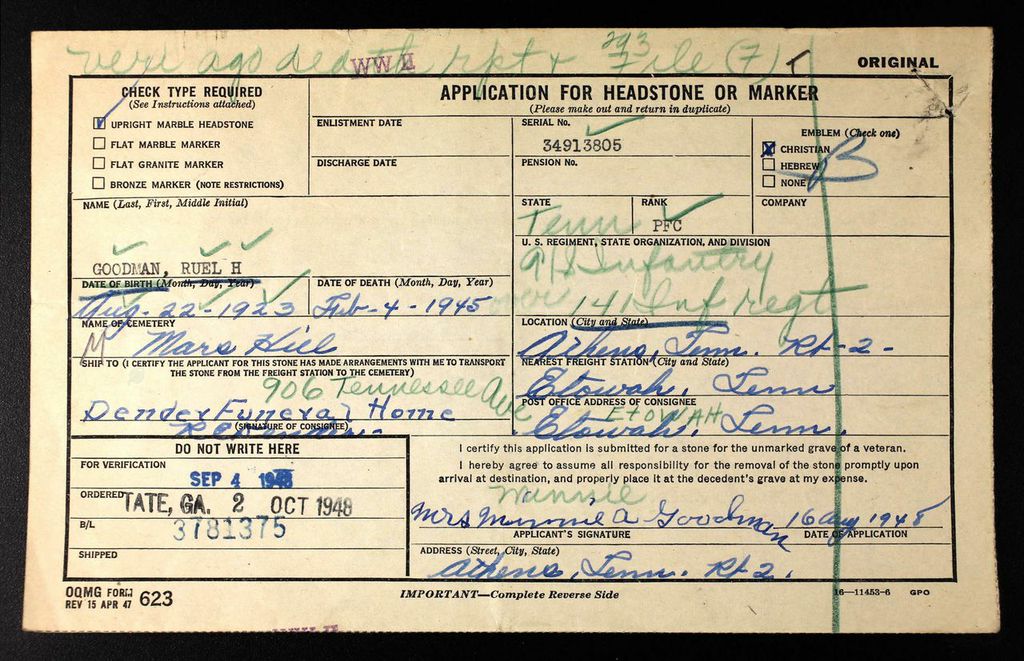 veri ago death rpt + 293 File (7)
WW II
ORIGINAL
CHECK TYPE REQUIRED
(See Instructions attached)
UPRIGHT MARBLE HEADSTONE
FLAT MARBLE MARKER
FLAT GRANITE MARKER
BRONZE MARKER (NOTE RESTRICTIONS)
APPLICATION FOR HEADSTONE OR MARKER
(Please make out and return in duplicate)
ENLISTMENT DATE
DISCHARGE DATE
SERIAL No.
34913805
PENSION No.
EMBLEM (Check one)
X CHRISTIAN
HEBREW
NONE
B
NAME (Last, First, Middle Initial)
GOODMAN, RUEL H
STATE
Tenn
RANK
PFC
COMPANY
U. S. REGIMENT, STATE ORGANIZATION, AND DIVISION
Infantry
141 Inf regt
DATE OF BIRTH (Month, Day, Year)
Aug-22-1923
DATE OF DEATH (Month, Day, Year)
Feb-4-1945
NAME OF CEMETERY
Mars Hill
LOCATION (City and State)
Athens, Tenn. Rt-2-
SHIP TO (I CERTIFY THE APPLICANT FOR THIS STONE HAS MADE ARRANGEMENTS WITH ME TO TRANSPORT
THE STONE FROM THE FREIGHT STATION TO THE CEMETERY)
906 Tennessee Ave
Dender Funeral Home
(SIGNATURE OF CONSIGNEE)
NEAREST FREIGHT STATION (City and State)
Etowah, Tenn
POST OFFICE ADDRESS OF CONSIGNEE
ETOWAH
Etowah, Tenn.
DO NOT WRITE HERE
FOR VERIFICATION
SEP 4 1948
ORDERED
TATE, GA. 2 OCT 1948
B/L
3781375
SHIPPED
I certify this application is submitted for a stone for the unmarked grave of a veteran.
I hereby agree to assume all responsibility for the removal of the stone promptly upon
arrival at destination, and properly place it at the decedent's grave at my expense.
Winnie
Mrs Minnie A Goodman 16 Aug 1948
APPLICANT'S SIGNATURE
DATE OF APPLICATION
ADDRESS (Street, City, State)
Athens, Tenn. Rt 2.
OQMG FORM
REV 15 APR 47 623
IMPORTANT—Complete Reverse Side
16—11453-6 GPO